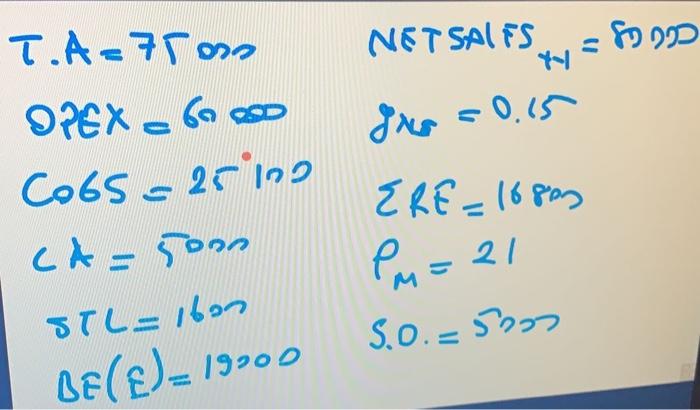 T.A = 75000
OPEX = 60000
COGS = 25100
CA = 5000
STL = 1600
BE(E) = 19000
NETSALES t-1 = 80000
gNS = 0.15
ΣRE = 16800
PM = 21
S.O. = 5000